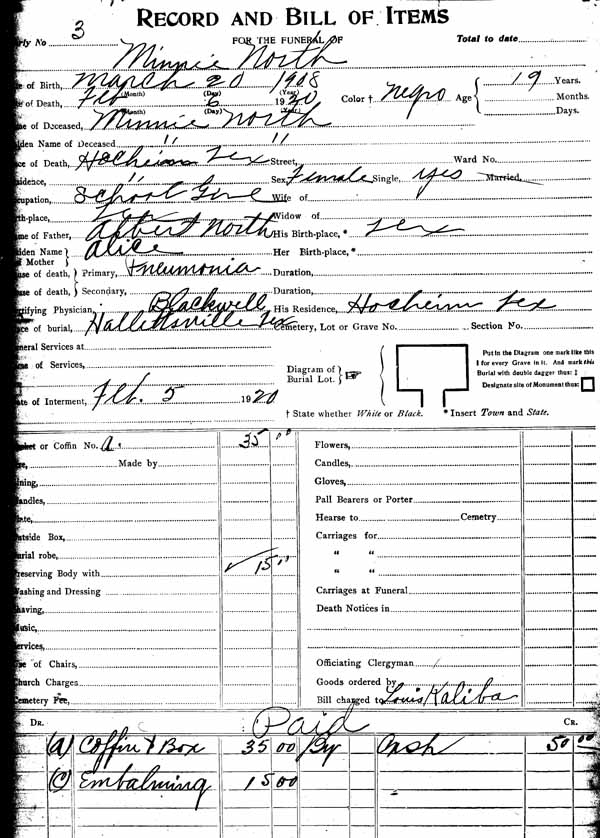 RECORD AND BILL OF ITEMS
rly No 3 FOR THE FUNERAL OF Total to date
Minnie North
e of Birth, March 20 1908
(Month) (Day) (Year)
e of Death, Feb 6 1920 Color † Negro Age 19 Years.
(Month) (Day) (Year) Months.
Days.
me of Deceased, Minnie North
iden Name of Deceased " "
ce of Death, Hocheim Tex Street, Ward No.
sidence, " Sex Female Single, yes Married,
cupation, School Girl Wife of
th-place, Tex Widow of
me of Father, Albert North His Birth-place, * Tex
iden Name of Mother Alice Her Birth-place, *
use of death, Primary, Pneumonia Duration,
use of death, Secondary, Duration,
rtifying Physician, Blackwell His Residence, Hocheim Tex
ce of burial, Hallettsville Tex Cemetery, Lot or Grave No. Section No.
neral Services at
me of Services,
Diagram of Burial Lot.
Put in the Diagram one mark like this
I for every Grave in it. And mark this
Burial with double dagger thus: ‡
Designate site of Monument thus:
te of Interment, Feb. 5 1920
† State whether White or Black. * Insert Town and State.
sket or Coffin No. a. 35 00 Flowers,
Made by Candles,
ning, Gloves,
andles, Pall Bearers or Porter
late, Hearse to Cemetry
utside Box, Carriages for
urial robe, " "
reserving Body with 15 " " "
ashing and Dressing Carriages at Funeral
having, Death Notices in
usic,
ervices,
se of Chairs, Officiating Clergyman
hurch Charges Goods ordered by
emetery Fee, Bill charged to Louis Kaliba
DR. Paid CR.
(A) Coffin & Box 35 00 By Cash 50 00
(C) Embalming 15 00